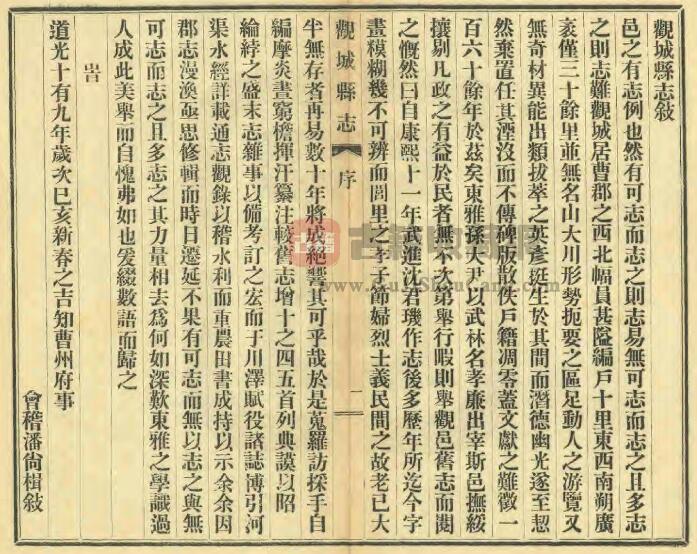 觀城縣志敍
邑之有志例也然有可志而志之則志易無可志而志之且多志
之則志難觀城居曹郡之西北幅員甚隘編戶十里東西南朔廣
袤僅三十餘里並無名山大川形勢扼要之區足動人之游覽又
無奇材異能出類拔萃之英彥挺生於其間而潛德幽光遂至恝
然棄置任其湮沒而不傳碑版散佚戶籍凋零蓋文獻之難徵一
百六十餘年於茲矣東雅孫大尹以武林名孝廉出宰斯邑撫綏
攘剔凡政之有益於民者無不次第舉行暇則舉觀邑舊志而閱
之慨然曰自康熙十一年武進沈君璣作志後多歷年所迄今字
畫糢糊幾不可辨而閭里之孝子節婦烈士義民問之故老已大
觀城縣志
序
二
半無存者再易數十年將成絕響其可乎哉於是蒐羅訪採手自
編摩炎晝窮檐揮汗纂注較舊志增十之四五首列典謨以昭
綸綍之盛末志雜事以備考訂之宏而于川澤賦役諸誌博引河
渠水經詳載通志觀錄以稽水利而重農田書成持以示余余因
郡志漫漶亟思修輯而時日遷延不果有可志而無以志之與無
可志而志之且多志之其力量相去為何如深歎東雅之學識過
人成此美舉而自愧弗如也爰綴數語而歸之
旹
道光十有九年歲次己亥新春之吉知曹州府事
會稽潘尙楫敍
www.GuJiShouCang.com